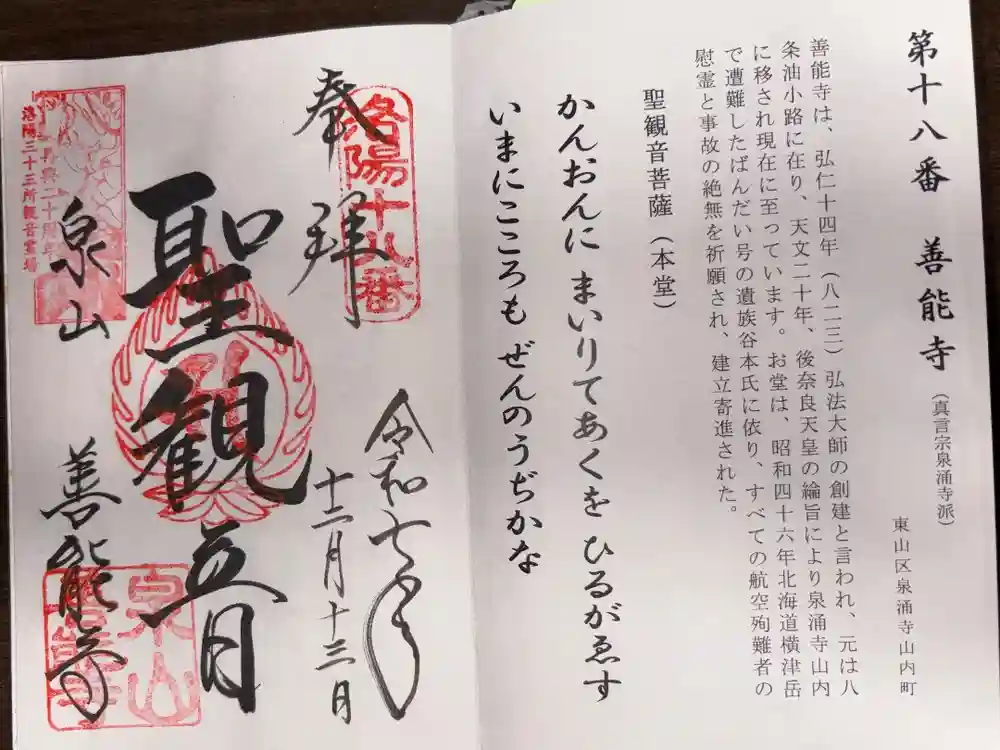 第十八番 善能寺(真言宗泉涌寺派)
東山区泉涌寺山内町
善能寺は、弘仁十四年(八二三)弘法大師の創建と言われ、元は八
条油小路に在り、天文二十年、後奈良天皇の綸旨により泉涌寺山内
に移され現在に至っています。お堂は、昭和四十六年北海道横津岳
で遭難したばんだい号の遺族谷本氏に依り、すべての航空殉難者の
慰霊と事故の絶無を祈願され、建立寄進された。
聖観音菩薩(本堂)
かんおんに まいりてあくを ひるがゑす
いまにこころも ぜんのうぢかな
洛陽十八番
奉拝
令和七年
十二月十三日
聖観音
泉山
善能寺
洛陽三十三所観音霊場
泉山
善能寺